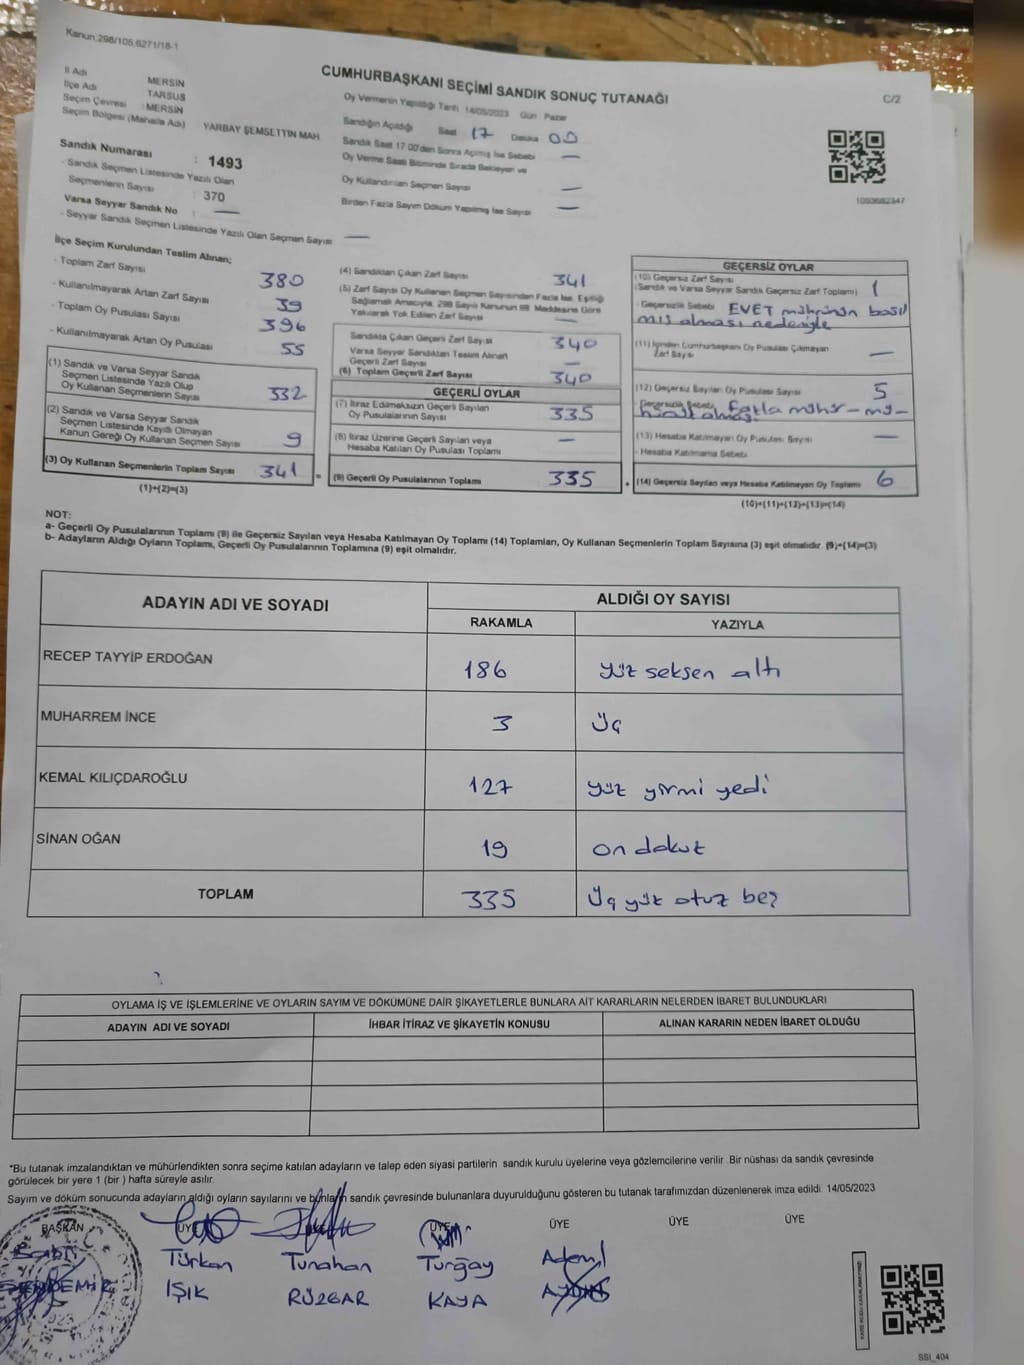 Kanun:298/105,6271/18-1
CUMHURBAŞKANI SEÇİMİ SANDIK SONUÇ TUTANAĞI
C/2
İl Adı MERSİN
İlçe Adı TARSUS
Seçim Çevresi : MERSİN
Seçim Bölgesi (Mahalle Adı) YARBAY ŞEMSETTİN MAH.
Oy Vermenin Yapıldığı Tarih 14/05/2023 Gün : Pazar
Sandığın Açıldığı Saat 17 Dakika 00
Sandık Saat 17:00'den Sonra Açılmış İse Sebebi —
Oy Verme Saati Bitiminde Sırada Bekleyen ve
Oy Kullandırılan Seçmen Sayısı —
Birden Fazla Sayım Döküm Yapılmış İse Sayısı —
Sandık Numarası : 1493
- Sandık Seçmen Listesinde Yazılı Olan
Seçmenlerin Sayısı : 370
Varsa Seyyar Sandık No : —
- Seyyar Sandık Seçmen Listesinde Yazılı Olan Seçmen Sayısı —
1093682347
İlçe Seçim Kurulundan Teslim Alınan;
- Toplam Zarf Sayısı 380
- Kullanılmayarak Artan Zarf Sayısı 39
- Toplam Oy Pusulası Sayısı 396
- Kullanılmayarak Artan Oy Pusulası 55
(1) Sandık ve Varsa Seyyar Sandık
Seçmen Listesinde Yazılı Olup
Oy Kullanan Seçmenlerin Sayısı 332
(2) Sandık ve Varsa Seyyar Sandık
Seçmen Listesinde Kayıtlı Olmayan
Kanun Gereği Oy Kullanan Seçmen Sayısı 9
(3) Oy Kullanan Seçmenlerin Toplam Sayısı 341 =
(1)+(2)=(3)
(4) Sandıktan Çıkan Zarf Sayısı 341
(5) Zarf Sayısı Oy Kullanan Seçmen Sayısından Fazla İse, Eşitliği
Sağlamak Amacıyla, 298 Sayılı Kanunun 98. Maddesine Göre
Yakılarak Yok Edilen Zarf Sayısı —
Sandıkta Çıkan Geçerli Zarf Sayısı 340
Varsa Seyyar Sandıktan Teslim Alınan
Geçerli Zarf Sayısı —
(6) Toplam Geçerli Zarf Sayısı 340
GEÇERLİ OYLAR
(7) İtiraz Edilmeksizin Geçerli Sayılan
Oy Pusulalarının Sayısı 335
(8) İtiraz Üzerine Geçerli Sayılan veya
Hesaba Katılan Oy Pusulası Toplamı —
(9) Geçerli Oy Pusulalarının Toplamı 335
GEÇERSİZ OYLAR
(10) Geçersiz Zarf Sayısı
(Sandık ve Varsa Seyyar Sandık Geçersiz Zarf Toplamı) 1
- Geçersizlik Sebebi EVET mührünün basıl
mış olması nedeniyle
(11) İçinden Cumhurbaşkanı Oy Pusulası Çıkmayan
Zarf Sayısı —
(12) Geçersiz Sayılan Oy Pusulası Sayısı 5
- Geçersizlik Sebebi Fazla mühür
(13) Hesaba Katılmayan Oy Pusulası Sayısı —
- Hesaba Katılmama Sebebi
(14) Geçersiz Sayılan veya Hesaba Katılmayan Oy Toplamı 6
(10)+(11)+(12)+(13)=(14)
NOT:
a- Geçerli Oy Pusulalarının Toplamı (9) ile Geçersiz Sayılan veya Hesaba Katılmayan Oy Toplamı (14) Toplamları, Oy Kullanan Seçmenlerin Toplam Sayısına (3) eşit olmalıdır. (9)+(14)=(3)
b- Adayların Aldığı Oyların Toplamı, Geçerli Oy Pusulalarının Toplamına (9) eşit olmalıdır.
ADAYIN ADI VE SOYADI ALDIĞI OY SAYISI
RAKAMLA YAZIYLA
RECEP TAYYİP ERDOĞAN 186 yüz seksen altı
MUHARREM İNCE 3 Üç
KEMAL KILIÇDAROĞLU 127 yüz yirmi yedi
SİNAN OĞAN 19 on dokuz
TOPLAM 335 Üç yüz otuz beş
OYLAMA İŞ VE İŞLEMLERİNE VE OYLARIN SAYIM VE DÖKÜMÜNE DAİR ŞİKAYETLERLE BUNLARA AİT KARARLARIN NELERDEN İBARET BULUNDUKLARI
ADAYIN ADI VE SOYADI İHBAR İTİRAZ VE ŞİKAYETİN KONUSU ALINAN KARARIN NEDEN İBARET OLDUĞU
*Bu tutanak imzalandıktan ve mühürlendikten sonra seçime katılan adayların ve talep eden siyasi partilerin sandık kurulu üyelerine veya gözlemcilerine verilir. Bir nüshası da sandık çevresinde
görülecek bir yere 1 (bir) hafta süreyle asılır.
Sayım ve döküm sonucunda adayların aldığı oyların sayılarını ve bunların sandık çevresinde bulunanlara duyurulduğunu gösteren bu tutanak tarafımızdan düzenlenerek imza edildi. 14/05/2023
BAŞKAN ÜYE ÜYE ÜYE ÜYE ÜYE
Sabri Türkan Tunahan Turgay
IŞIK RÜZGAR KAYA
SSI_404